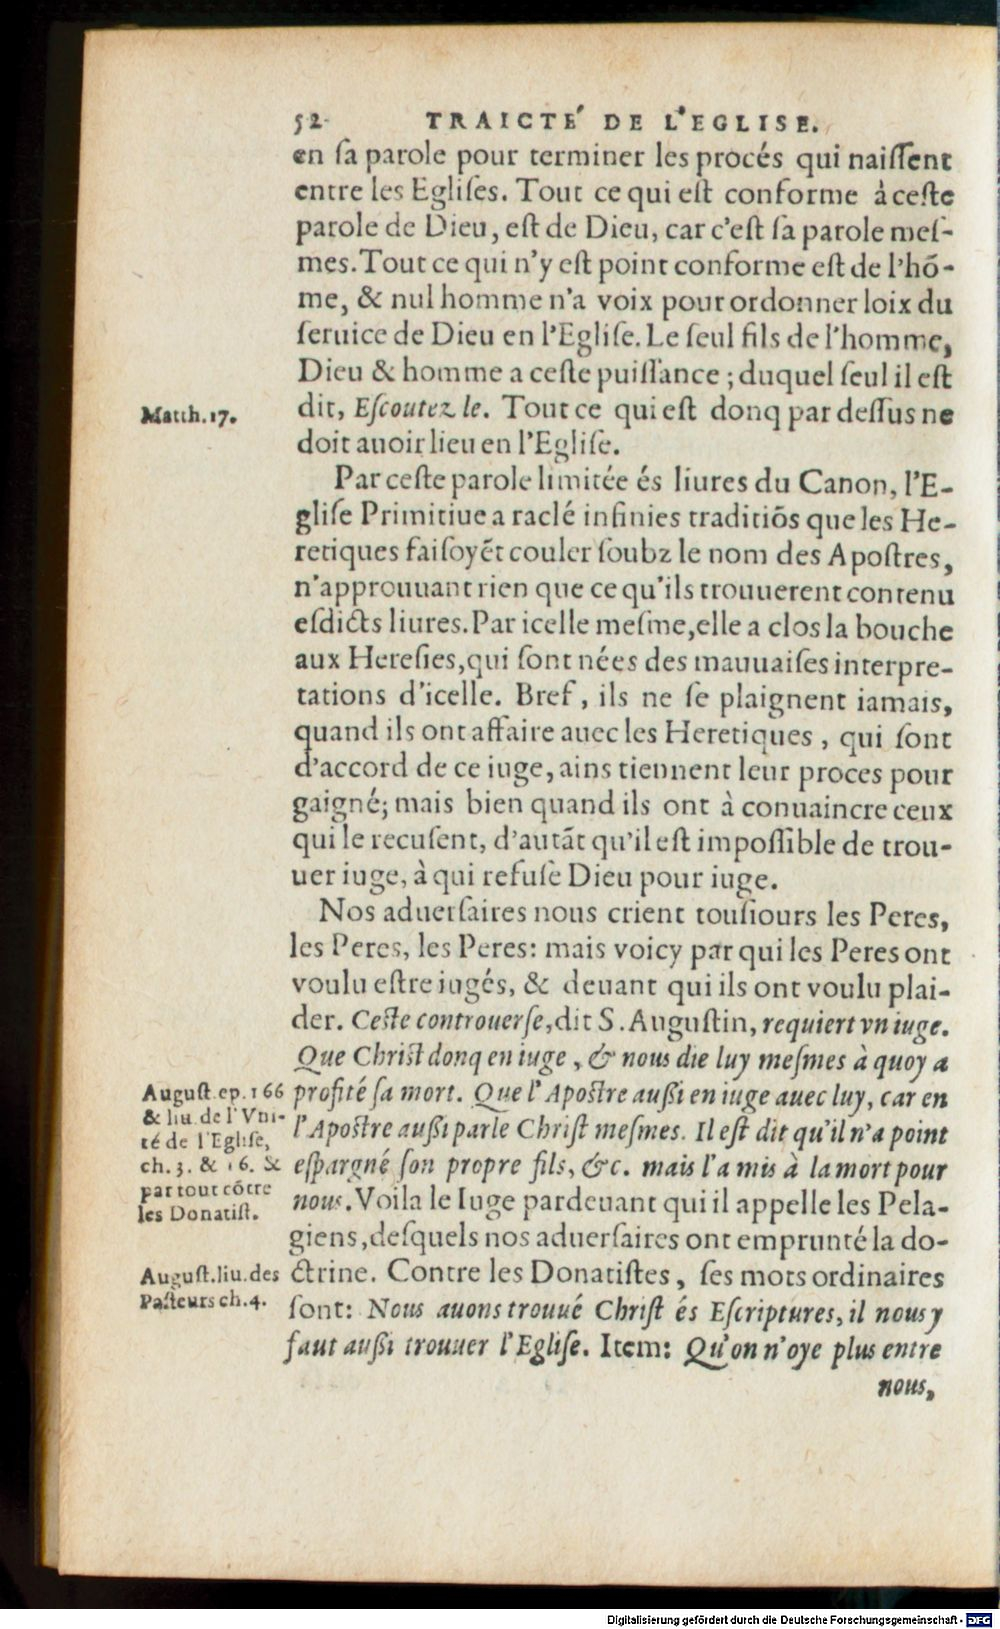 52 TRAICTÉ DE L'EGLISE.
en ſa parole pour terminer les procés qui naiſſent
entre les Egliſes. Tout ce qui eſt conforme à ceſte
parole de Dieu, eſt de Dieu, car c'eſt ſa parole meſ-
mes. Tout ce qui n'y eſt point conforme eſt de l'hõ-
me, & nul homme n'a voix pour ordonner loix du
ſeruice de Dieu en l'Egliſe. Le ſeul fils de l'homme,
Dieu & homme a ceſte puiſſance; duquel ſeul il eſt
Matth. 17.
dit, Eſcoutez le. Tout ce qui eſt donq par deſſus ne
doit auoir lieu en l'Egliſe.
Par ceſte parole limitée és liures du Canon, l'E-
gliſe Primitiue a raclé infinies traditiõs que les He-
retiques faiſoyẽt couler ſoubz le nom des Apoſtres,
n'approuuant rien que ce qu'ils trouuerent contenu
eſdicts liures. Par icelle meſme, elle a clos la bouche
aux Hereſies, qui ſont nées des mauuaiſes interpre-
tations d'icelle. Bref, ils ne ſe plaignent iamais,
quand ils ont affaire auec les Heretiques, qui ſont
d'accord de ce iuge, ains tiennent leur proces pour
gaigné; mais bien quand ils ont à conuaincre ceux
qui le recuſent, d'autãt qu'il eſt impoſſible de trou-
uer iuge, à qui refuſe Dieu pour iuge.
Nos aduerſaires nous crient touſiours les Peres,
les Peres, les Peres: mais voicy par qui les Peres ont
voulu eſtre iugés, & deuant qui ils ont voulu plai-
der. Ceſte controuerſe, dit S. Auguſtin, requiert vn iuge.
Que Chriſt donq en iuge, & nous die luy meſmes à quoy a
Auguſt. ep. 166
& liu. de l'Vni-
té de l'Egliſe,
ch. 3. & 16. &
par tout cõtre
les Donatiſt.
profité ſa mort. Que l'Apoſtre auſſi en iuge auec luy, car en
l'Apoſtre auſſi parle Chriſt meſmes. Il eſt dit qu'il n'a point
eſpargné ſon propre fils, &c. mais l'a mis à la mort pour
nous. Voila le Iuge pardeuant qui il appelle les Pela-
giens, deſquels nos aduerſaires ont emprunté la do-
Auguſt. liu. des
Paſteurs ch. 4.
ctrine. Contre les Donatiſtes, ſes mots ordinaires
ſont: Nous auons trouué Chriſt és Eſcriptures, il nous y
faut auſſi trouuer l'Egliſe. Item: Qu'on n'oye plus entre
nous,
Digitalisierung gefördert durch die Deutsche Forschungsgemeinschaft - DFG